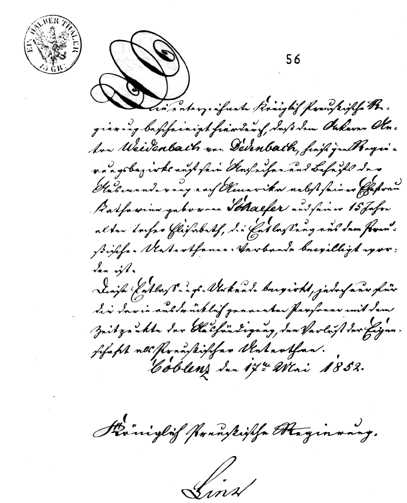 EIN HALBER THALER
15 GR:
56
Die unterzeichnete Königlich Preußische Re-
gierung bescheinigt hierdurch, daß dem Ackerer An-
ton Weidenbach von Dernbach, hiesigen Regie-
rungsbezirks auf sein Ansuchen und Behufs der
Auswanderung nach Amerika nebst seiner Ehefrau
Katharina geborene Schaefer und seiner 15 Jahre
alten Tochter Elisabeth, die Entlassung aus dem Preu-
ßischen Unterthanen-Verbande bewilligt wor-
den ist.
Diese Entlassungs-Urkunde bewirkt, jedoch nur für
die darin ausdrücklich genannten Personen mit dem
Zeitpunkte der Aushändigung, den Verlust der Eigen-
schaft als Preußischer Unterthan.
Coblenz den 17ten Mai 1852.
Königlich Preußische Regierung.